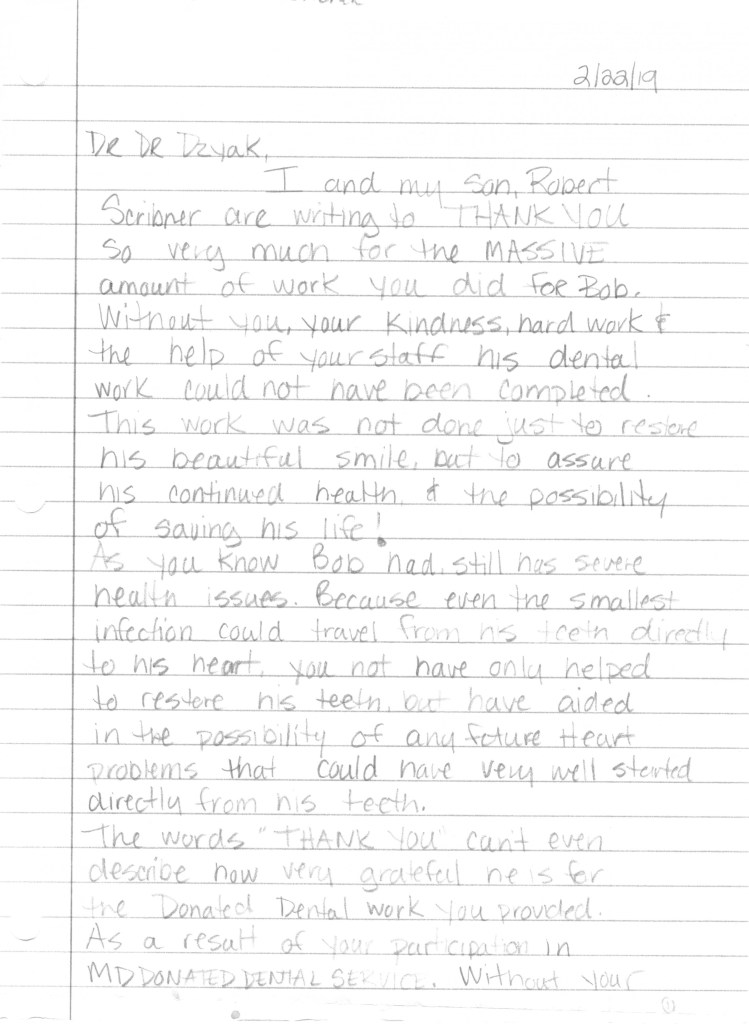 2/22/19
DR DR Dzyak,
I and my son, Robert
Scribner are writing to THANK YOU
So very much for the MASSIVE
amount of work you did for Bob.
Without you, your kindness, hard work &
the help of your staff his dental
work could not have been completed.
This work was not done just to restore
his beautiful smile, but to assure
his continued health & the possibility
of saving his life!
As you know Bob had, still has severe
health issues. Because even the smallest
infection could travel from his teeth directly
to his heart, you not have only helped
to restore his teeth, but have aided
in the possibility of any future Heart
problems that could have very well started
directly from his teeth.
The words "THANK YOU" can't even
describe how very grateful he is for
the Donated Dental work you provided.
As a result of your participation in
MD DONATED DENTAL SERVICE. Without your
1